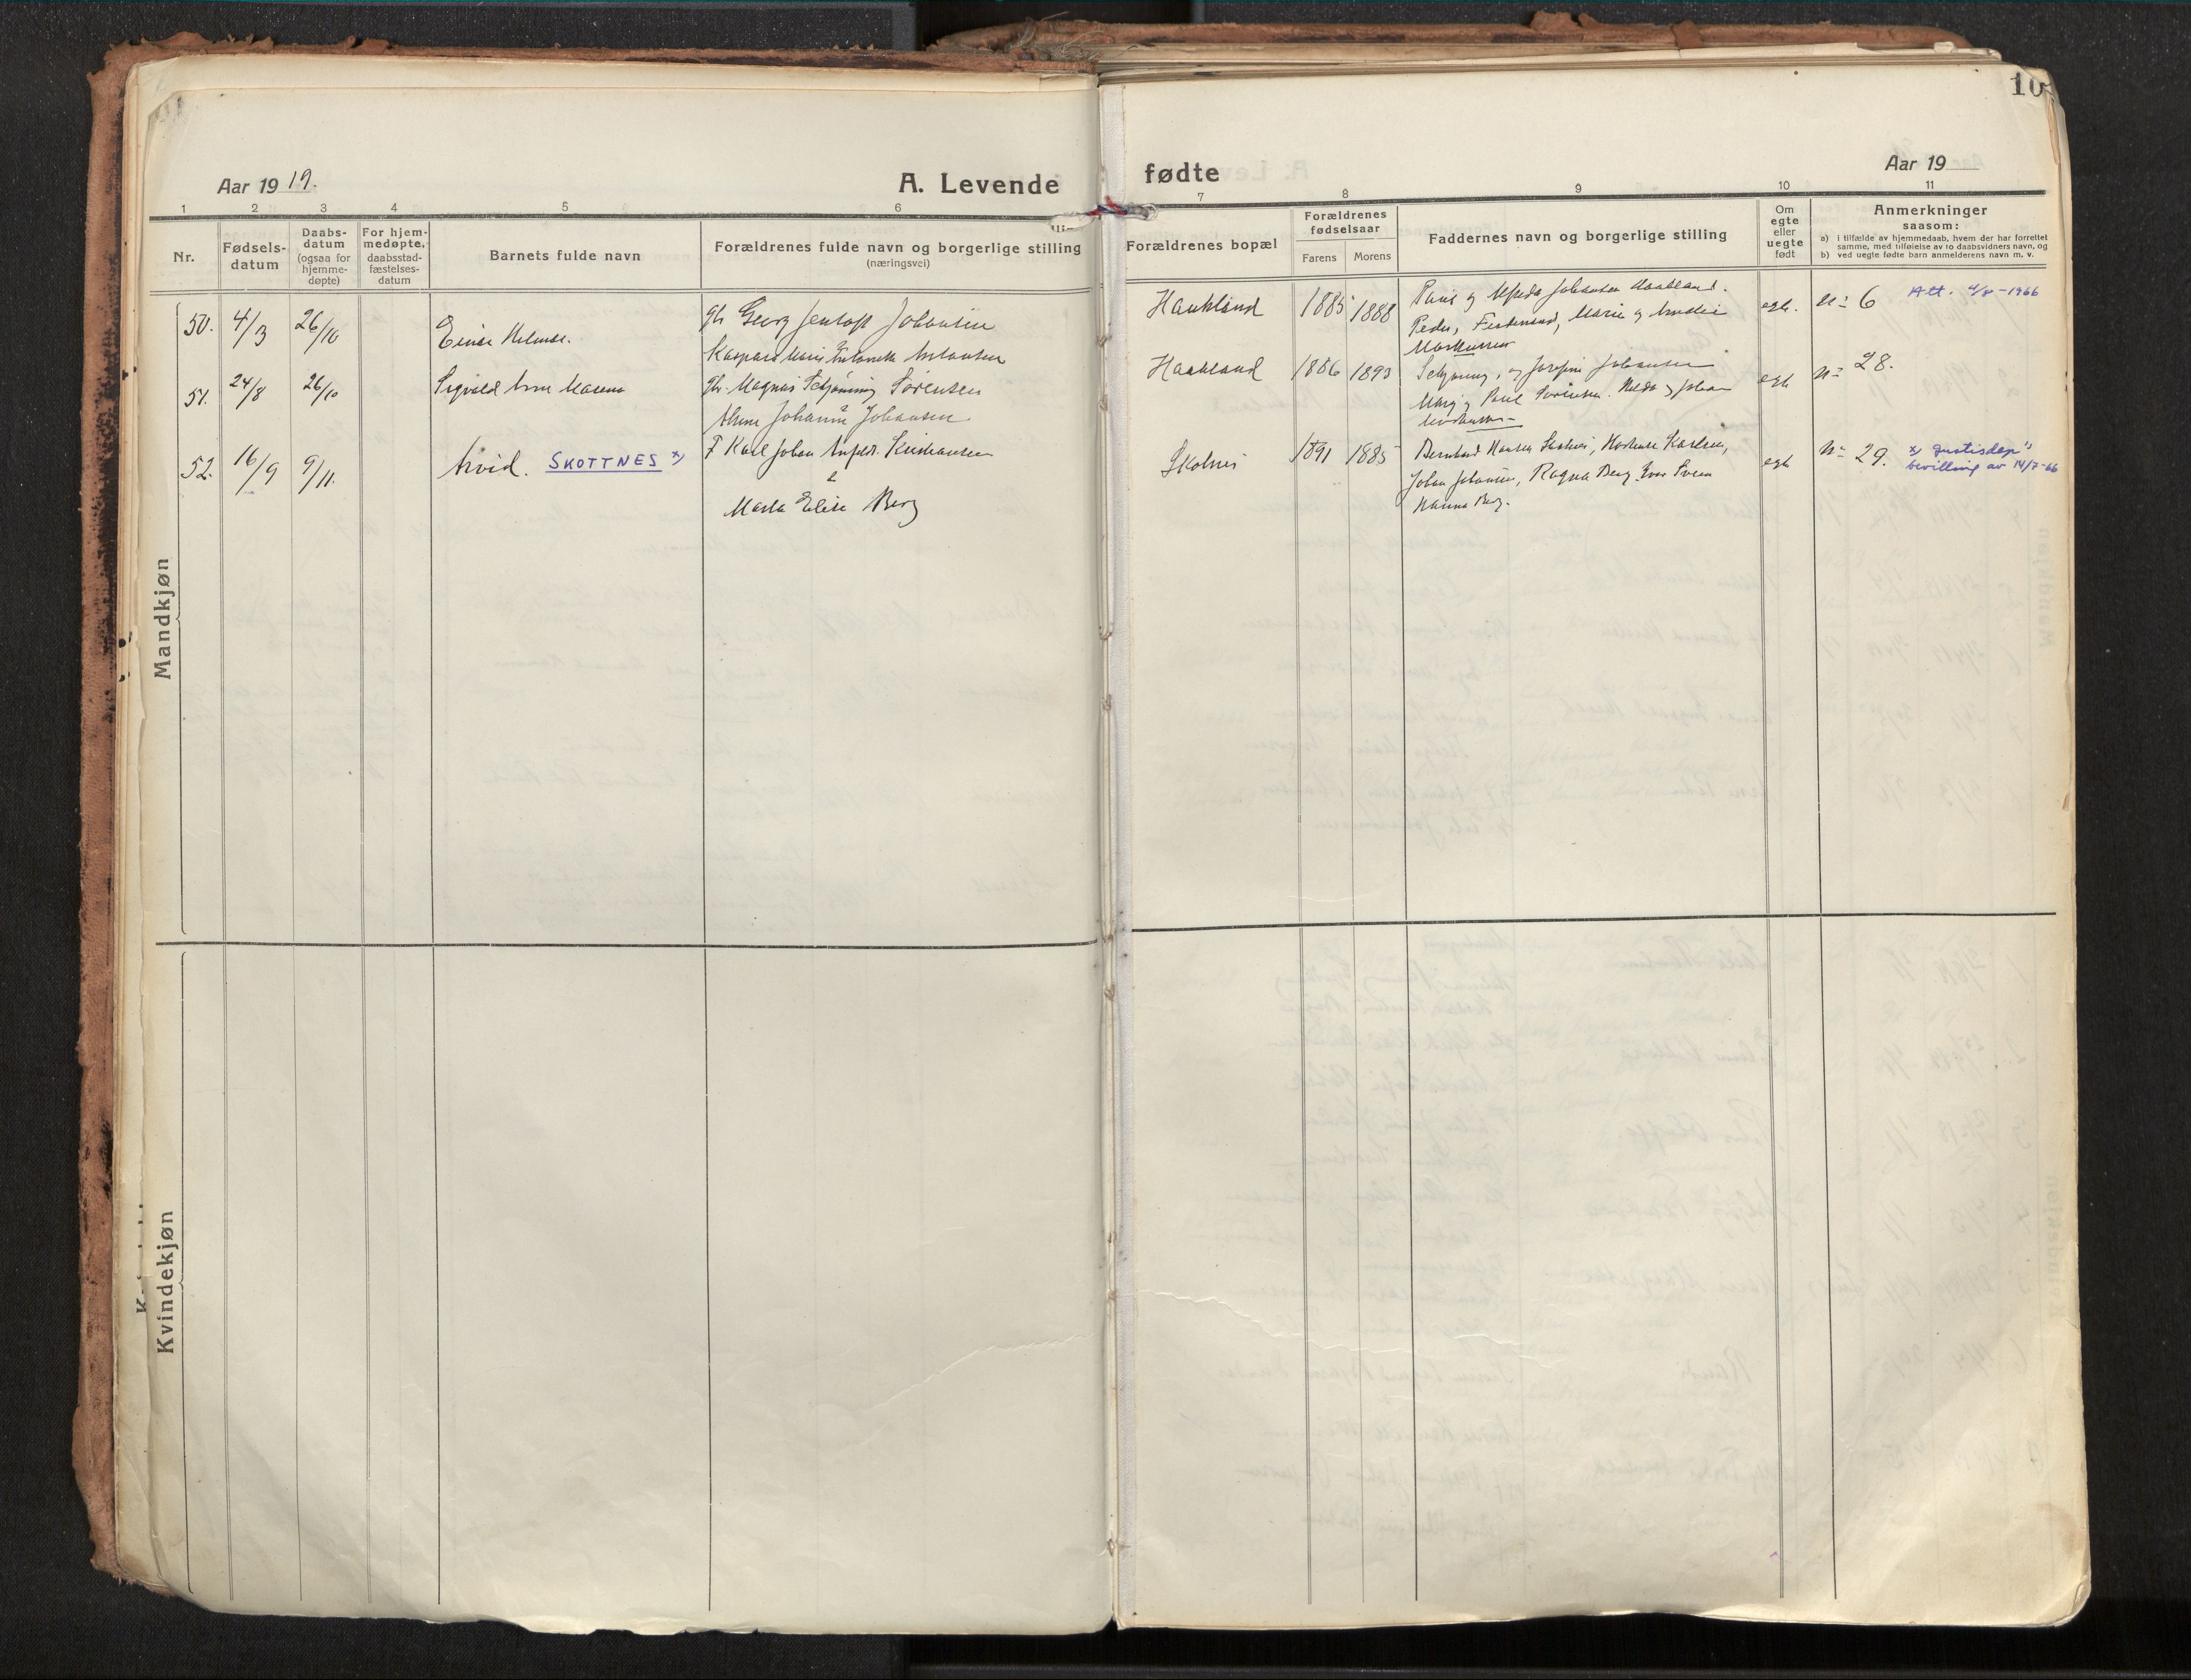 10
Aar 19 19.
A. Levende
fødte
Aar 19
1 2 3 4 5 6 7 8 9 10 11
Nr.
Fødsels-
datum
Daabs-
datum
(ogsaa for
hjemme-
døpte)
For hjem-
medøpte,
daabsstad-
fæstelses-
datum
Barnets fulde navn
Forældrenes fulde navn og borgerlige stilling
(næringsvei)
Forældrenes bopæl
Forældrenes
fødselsaar
Farens Morens
Faddernes navn og borgerlige stilling
Om
egte
eller
uegte
født
Anmerkninger
saasom:
a) i tilfælde av hjemmedaab, hvem der har forrettet
samme, med tilføielse av to daabsvidners navn, og
b) ved uegte fødte barn anmelderens navn m. v.
Mandkjøn
50. 4/3 26/10
Einar
Georg Jentoft Johansen
Kaspara Marie Antonette Antonsen
Haukland 1885 1888
Paul og Alfreda Johansen Haukland.
Peder, Ferdinand, Marie og
Markussen
egte. No 6 Att. 4/8-1966
51. 24/8 26/10
Sigvald Arne
Magnus Schjønning Sørensen
Johanna Johansen
Haukland 1886 1893
Schjønning, og Josefine Johansen
Paul Sørensen. Hilda og Johan
egte No 28.
52. 16/9 9/11.
Arvid. SKOTTNES x)
F Karl Johan Kristiansen
&
Marta Elise Berg
Skotnes 1891 1885
Bernhard Hansen Skotnes, Karlsen,
Johan Johansen, Ragna Berg
Hanna Berg.
egte No 29. x) Justisdep's
bevilling av 14/7-66
Kvindekjøn